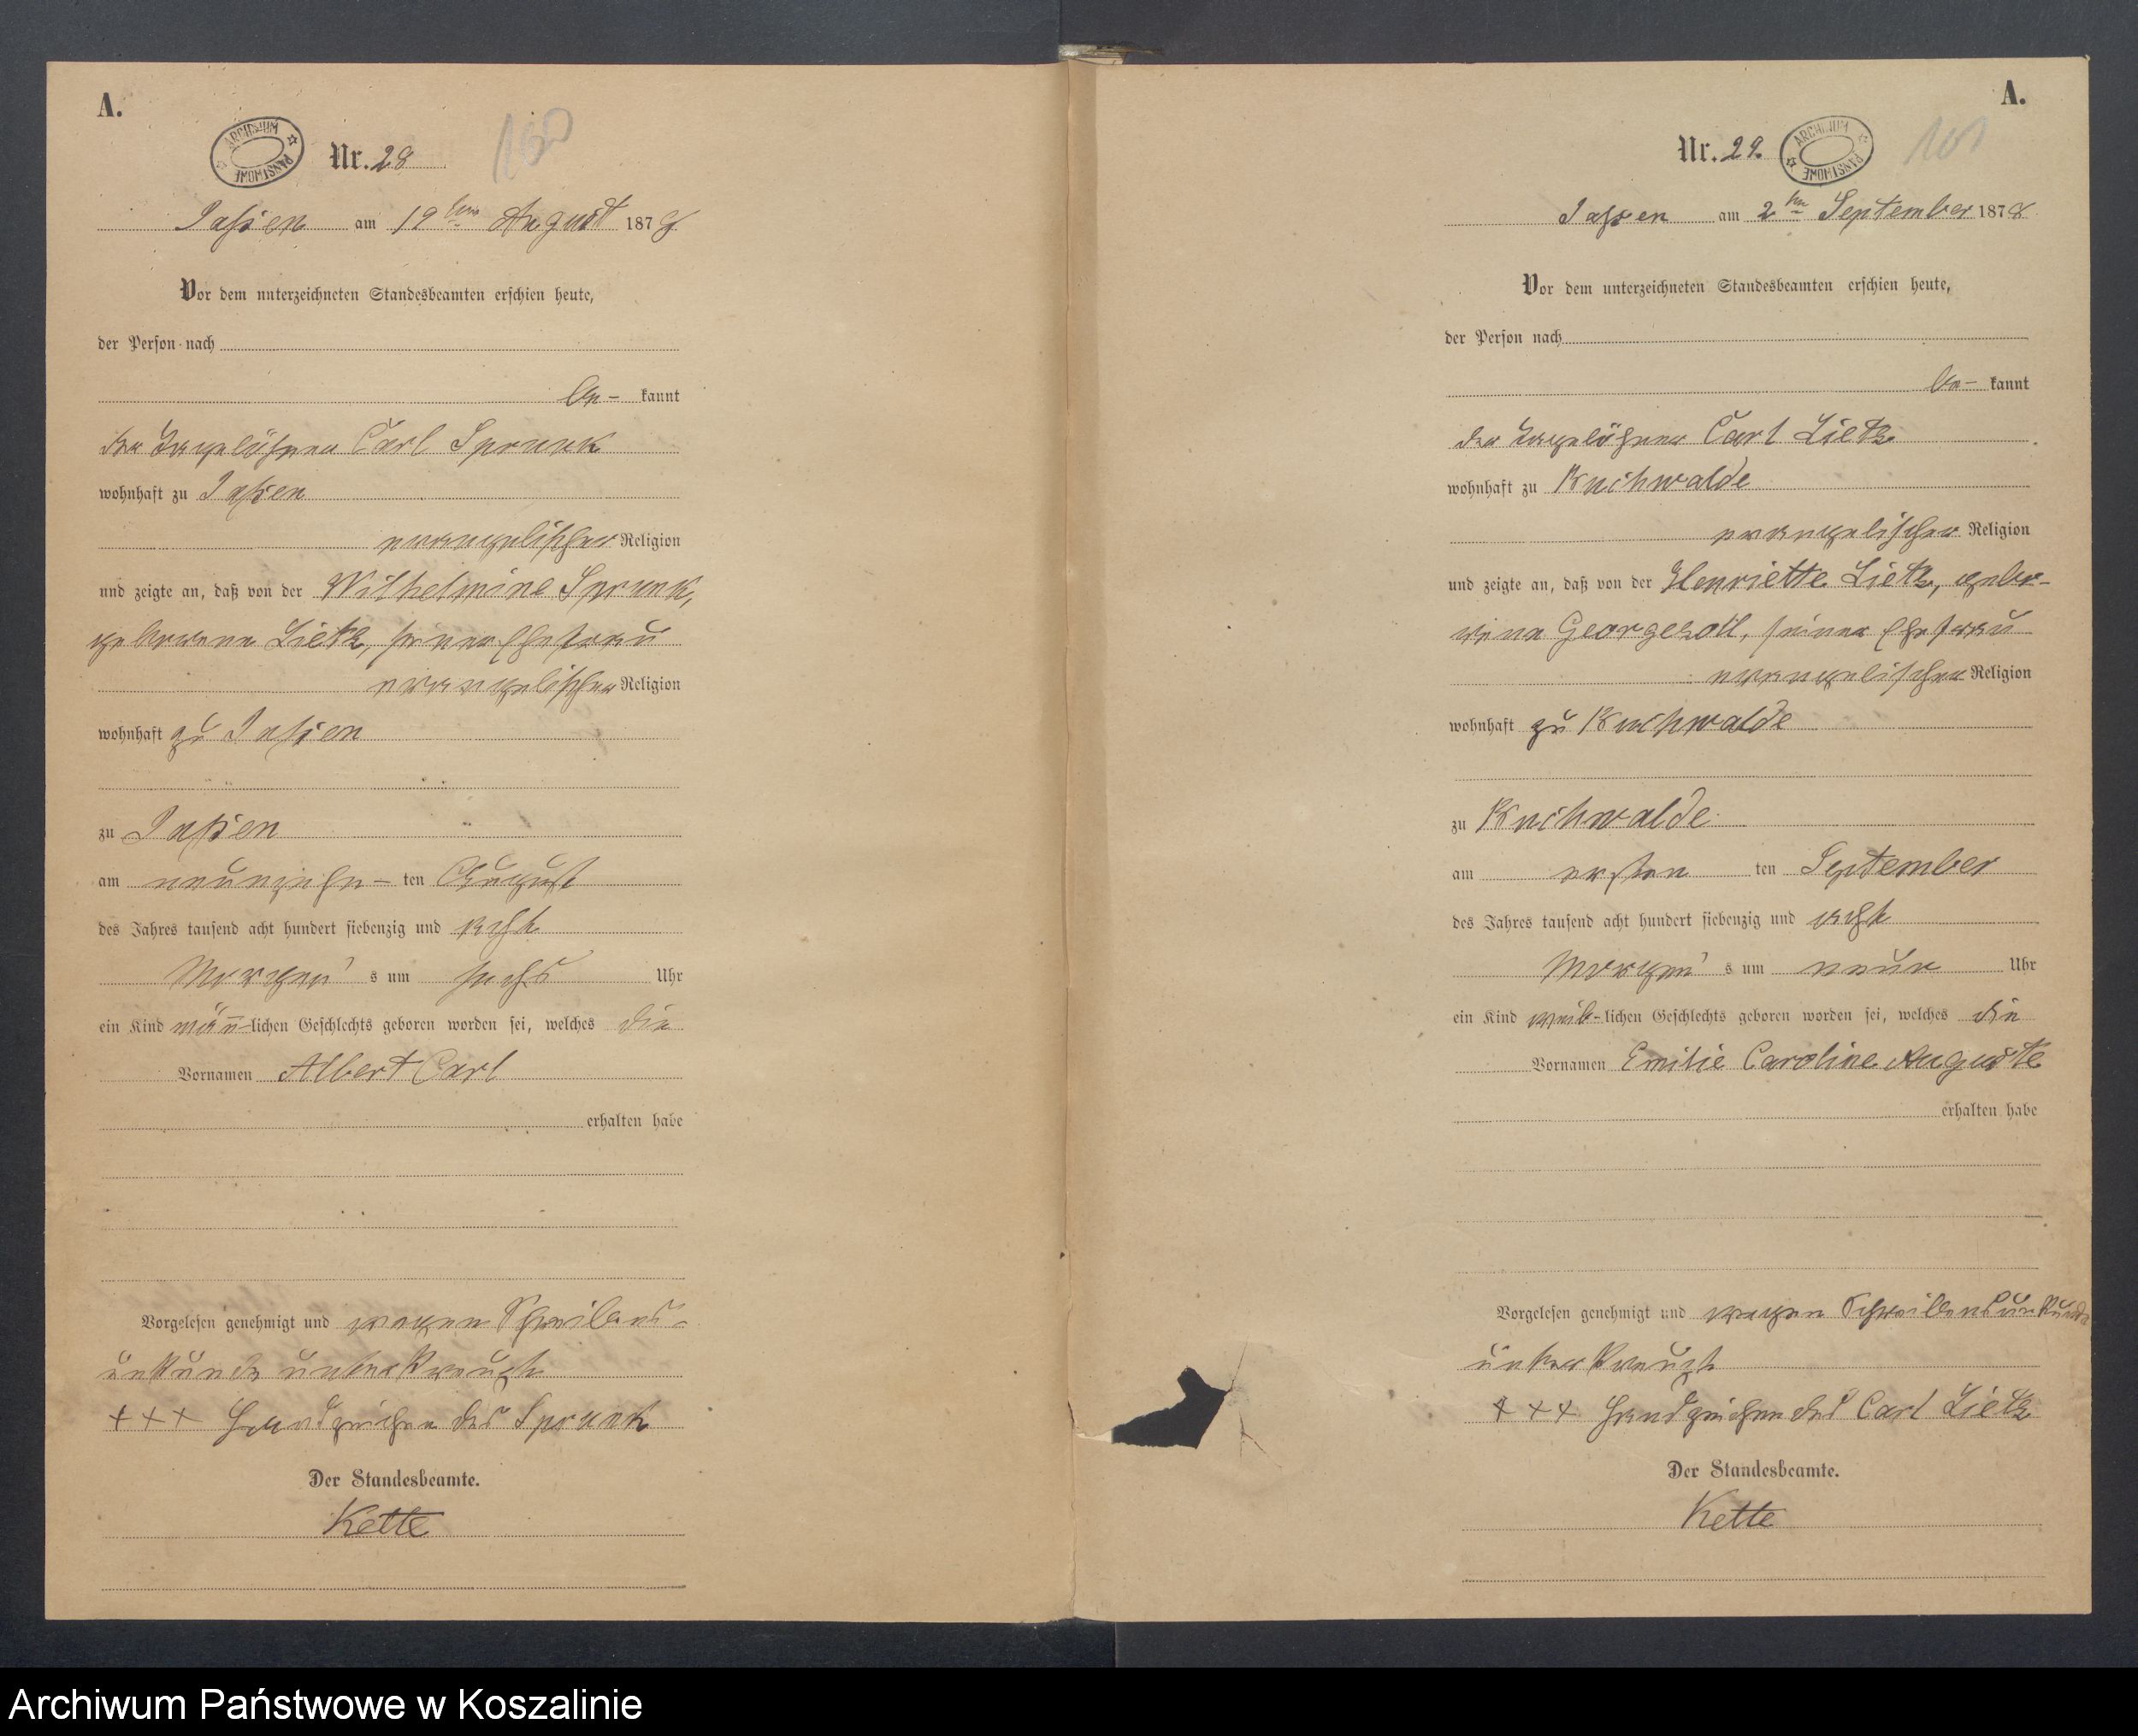 A.
ARCHIWUM PAŃSTWOWE
Nr. 28
100
Jassen am 19ten August 1878
Vor dem unterzeichneten Standesbeamten erschien heute,
der Person nach
be- kannt
der Tagelöhner Carl Sprunk
wohnhaft zu Jassen
evangelischer Religion
und zeigte an, daß von der Wilhelmine Sprunk,
geborene Lietz, seiner Ehefrau
evangelischer Religion
wohnhaft zu Jassen
zu Jassen
am neunzehn- ten August
des Jahres tausend acht hundert siebenzig und acht
Morgen's um sechs Uhr
ein Kind männ-lichen Geschlechts geboren worden sei, welches die
Vornamen Albert Carl
erhalten habe
Vorgelesen genehmigt und wegen Schreibens-
unkunde unterkreuzt
+++ Handzeichen des Sprunk
Der Standesbeamte.
Kette
A.
Nr. 29.
ARCHIWUM PAŃSTWOWE
101
Jassen am 2ten September 1878
Vor dem unterzeichneten Standesbeamten erschien heute,
der Person nach
be- kannt
der Tagelöhner Carl Lietz
wohnhaft zu Kuhwalde
evangelischer Religion
und zeigte an, daß von der Henriette Lietz, gebor-
rene, seiner Ehefrau
evangelischer Religion
wohnhaft zu Kuhwalde
zu Kuhwalde
am ersten ten September
des Jahres tausend acht hundert siebenzig und acht
Morgen's um neun Uhr
ein Kind weib-lichen Geschlechts geboren worden sei, welches die
Vornamen Emilie Caroline Auguste
erhalten habe
Vorgelesen genehmigt und wegen Schreibensunkunde
unterkreuzt
+++ Handzeichen des Carl Lietz
Der Standesbeamte.
Kette
Archiwum Państwowe w Koszalinie